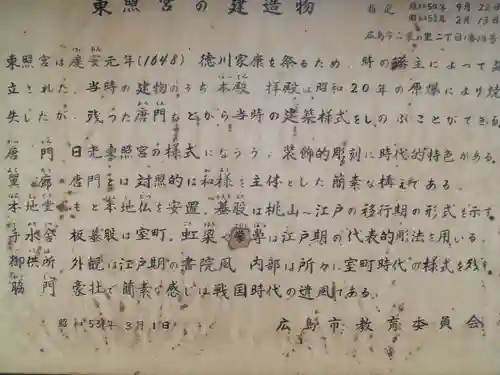 東照宮の建造物
指定 昭和54年 9月22日
昭和53年 2月13日
広島市二葉の里二丁目1番18号
東照宮は慶安元年(1648) 徳川家康を祭るため、時の藩主によって建
立された。当時の建物のうち本殿、拝殿は昭和20年の原爆により焼
失したが、残った唐門などから当時の建築様式をしのぶことができる。
唐門 日光東照宮の様式にならう。装飾的彫刻に時代的特色がある。
翼廊 唐門とは対照的に和様を主体とした簡素な構えである。
本地堂 もと本地仏を安置。蟇股は桃山〜江戸の移行期の形式を示す。
手水舎 板蟇股は室町、虹梁や拳鼻は江戸期の代表的彫法を用いる。
御供所 外観は江戸期の書院風 内部は所々に室町時代の様式を残す。
脇門 豪壮で簡素な感じは戦国時代の遺風である。
昭和53年3月1日
広島市教育委員会